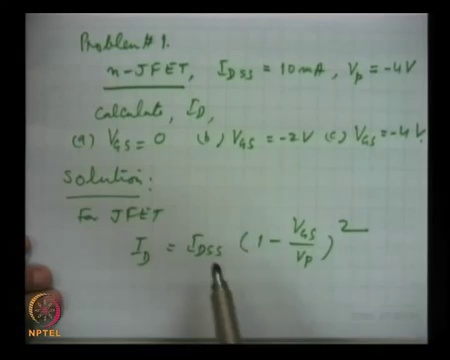 Problem # 1.
n-JFET, I_DSS = 10 mA, V_p = -4V
Calculate, I_D,
(a) V_GS = 0 (b) V_GS = -2V (c) V_GS = -4V.
Solution:
For JFET
I_D = I_DSS (1 - V_GS/V_P)^2
NPTEL